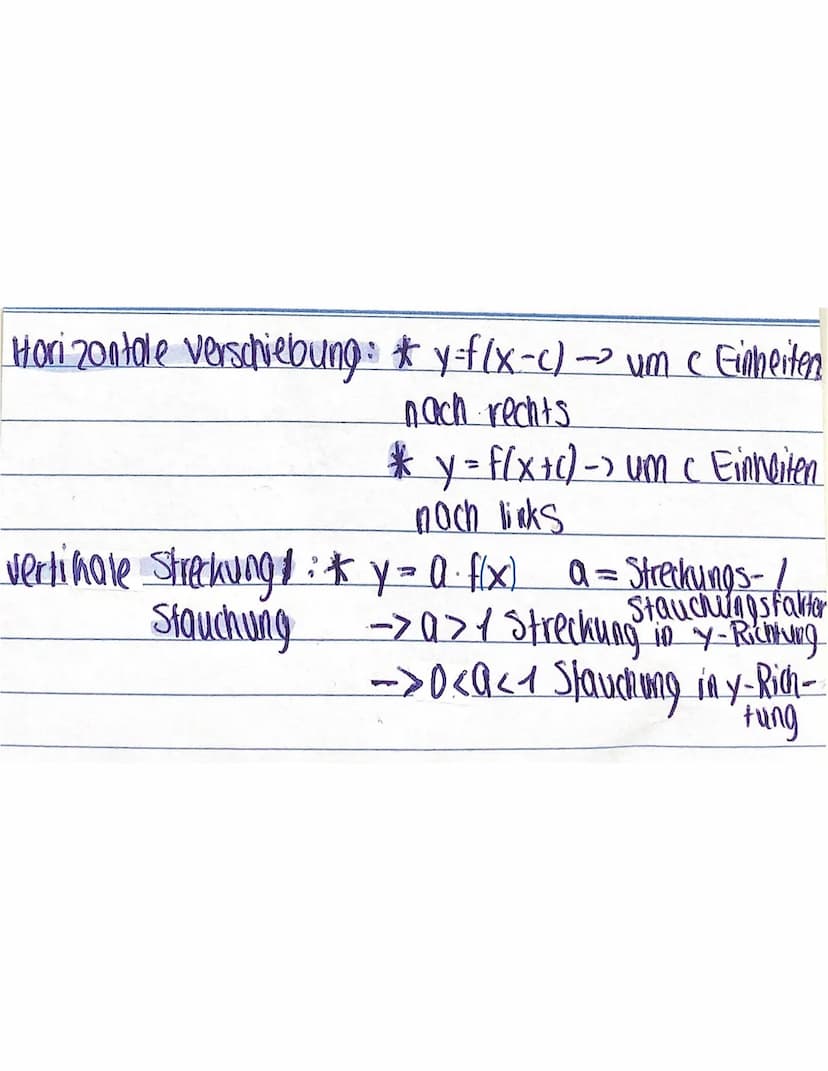 Horizontale Verschiebung: * y=f(x-c) -> um c Einheiten
nach rechts
* y=f(x+c) -> um c Einheiten
nach links
Vertikale Streckung/: * y = a · f(x) a = Streckungs-/
Stauchungsfaktor
Stauchung -> a > 1 Streckung in y-Richtung
-> 0<a<1 Stauchung in y-Rich-
tung